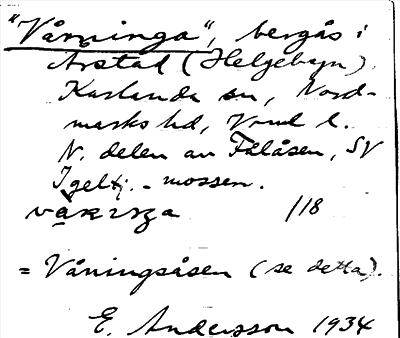 "Våninga", bergås i
Årstad (Helgebyn)
Karlanda sn, Nord-
marks hd, Vrml l.
N. delen av Falåsen, SV
Igeltj.-mossen.
118
= Våningsåsen (se detta).
E. Andersson 1934